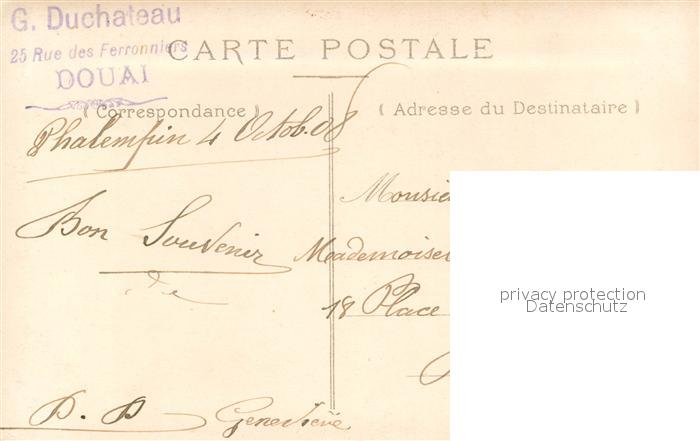 G. Duchateau
25 Rue des Ferronniers
DOUAI
CARTE POSTALE
( Correspondance )
( Adresse du Destinataire )
Phalempin 4 Octob. 08
Bon Souvenir
de
Monsie
Meademoisel
18 Place
privacy protection
Datenschutz
P. P Geneviève